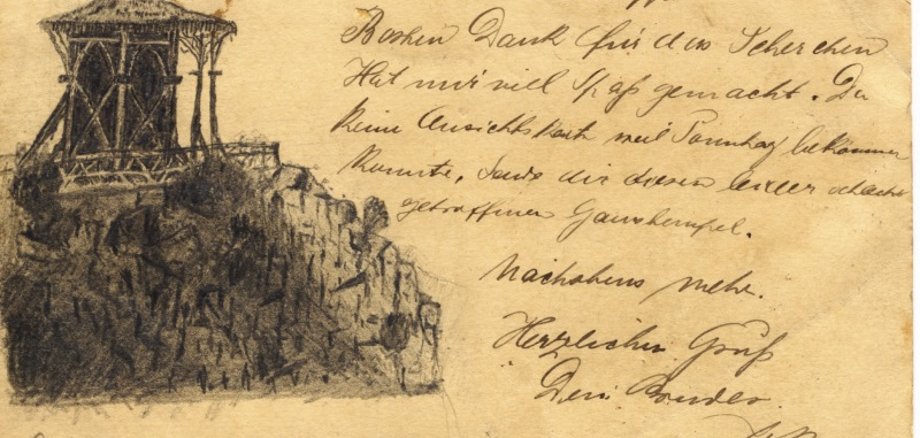 Besten Dank für das Scherchen
Hat mir viel Spaß gemacht. Da
keine Ansichtskarte weil Sonntag bekommen
konnte, sende dir diesen leider schlecht
getroffenen
Nächstens mehr.
Herzlichen Gruß
Dein Bruder